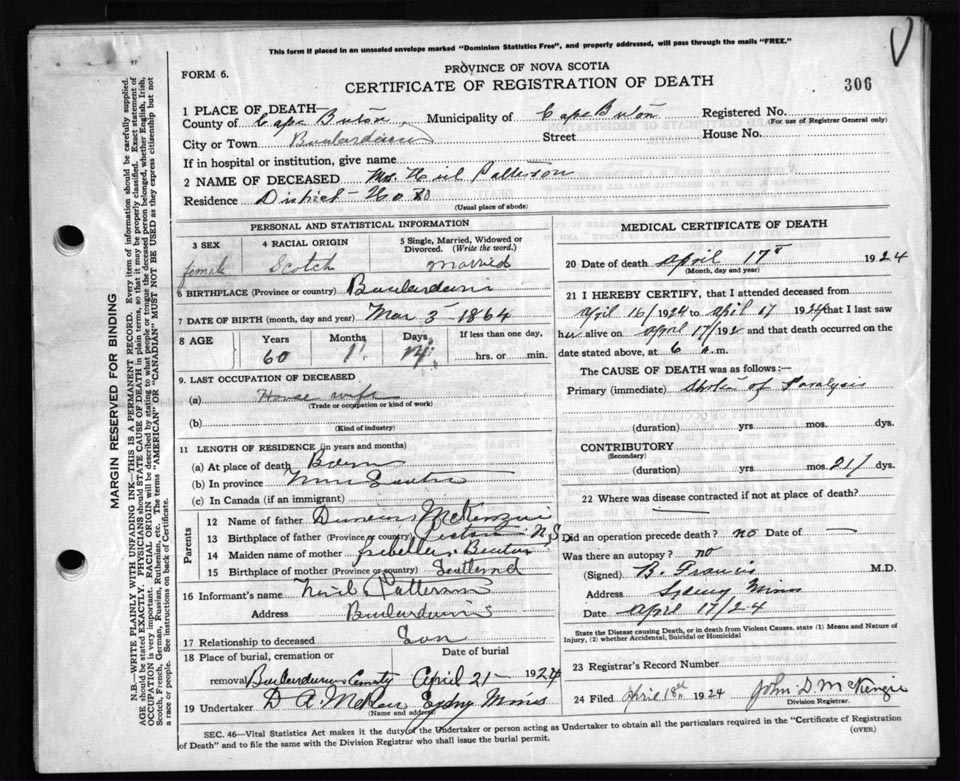 This form if placed in an unsealed envelope marked "Dominion Statistics Free", and properly addressed, will pass through the mails "FREE."
FORM 6.
PROVINCE OF NOVA SCOTIA
306
CERTIFICATE OF REGISTRATION OF DEATH
1 PLACE OF DEATH—
County of Cape Breton, Municipality of Cape Breton Registered No.
(For use of Registrar General only)
City or Town Boularderie Street House No.
If in hospital or institution, give name
2 NAME OF DECEASED Mrs. Neil Patterson
Residence District No
(Usual place of abode)
PERSONAL AND STATISTICAL INFORMATION
3 SEX 4 RACIAL ORIGIN 5 Single, Married, Widowed or Divorced. (Write the word.)
female Scotch Married
6 BIRTHPLACE (Province or country) Boularderie
7 DATE OF BIRTH (month, day and year) Mar 3 - 1864
8 AGE Years Months Days If less than one day,
60 1 14 hrs. or min.
9. LAST OCCUPATION OF DECEASED
(a) House wife
(Trade or occupation or kind of work)
(b)
(Kind of industry)
11 LENGTH OF RESIDENCE (in years and months)
(a) At place of death Born
(b) In province Nova Scotia
(c) In Canada (if an immigrant)
Parents
12 Name of father Duncan McKenzie
13 Birthplace of father (Province or country) N.S.
14 Maiden name of mother Isabella
15 Birthplace of mother (Province or country) Scotland
16 Informant's name Neil Patterson
Address Boularderie
17 Relationship to deceased Son
18 Place of burial, cremation or Date of burial
removal Boularderie April 21 - 1924
19 Undertaker D A McLean Sydney Mines
(Name and address)
MEDICAL CERTIFICATE OF DEATH
20 Date of death April 17 1924
(Month, day and year)
21 I HEREBY CERTIFY, that I attended deceased from
April 16/1924 to April 17 1924 that I last saw
her alive on April 17/192 and that death occurred on
date stated above, at 6 a.m.
The CAUSE OF DEATH was as follows:—
Primary (immediate) of Paralysis
(duration) yrs mos. dys.
CONTRIBUTORY
(Secondary)
(duration) yrs mos. dys.
22 Where was disease contracted if not at place of death?
Did an operation precede death? no Date of
Was there an autopsy? no
(Signed) B. Francis M.D.
Address Sydney Mines
Date April 17/24
State the Disease causing Death, or in death from Violent Causes. state (1) Means and Nature of Injury, (2) whether Accidental, Suicidal or Homicidal
23 Registrar's Record Number
24 Filed April 18th 1924 John D McKenzie
Division Registrar.
SEC. 46—Vital Statistics Act makes it the duty of the Undertaker or person acting as Undertaker to obtain all the particulars required in the "Certificate of Registration
of Death" and to file the same with the Division Registrar who shall issue the burial permit.
(OVER)
MARGIN RESERVED FOR BINDING
N.B.—WRITE PLAINLY WITH UNFADING INK—THIS IS A PERMANENT RECORD. Every item of information should be carefully supplied.
AGE should be stated EXACTLY. PHYSICIANS should STATE CAUSE OF DEATH in plain terms, so that it may be properly classified. Exact statement of
OCCUPATION is very important. RACIAL ORIGIN will be described by stating to what people or tongue the deceased person belonged, whether English, Irish,
Scotch, French, German, Russian, Ruthenian, etc. The terms "AMERICAN" OR "CANADIAN" MUST NOT BE USED as they express citizenship but not
a race or people. See instructions on back of Certificate.